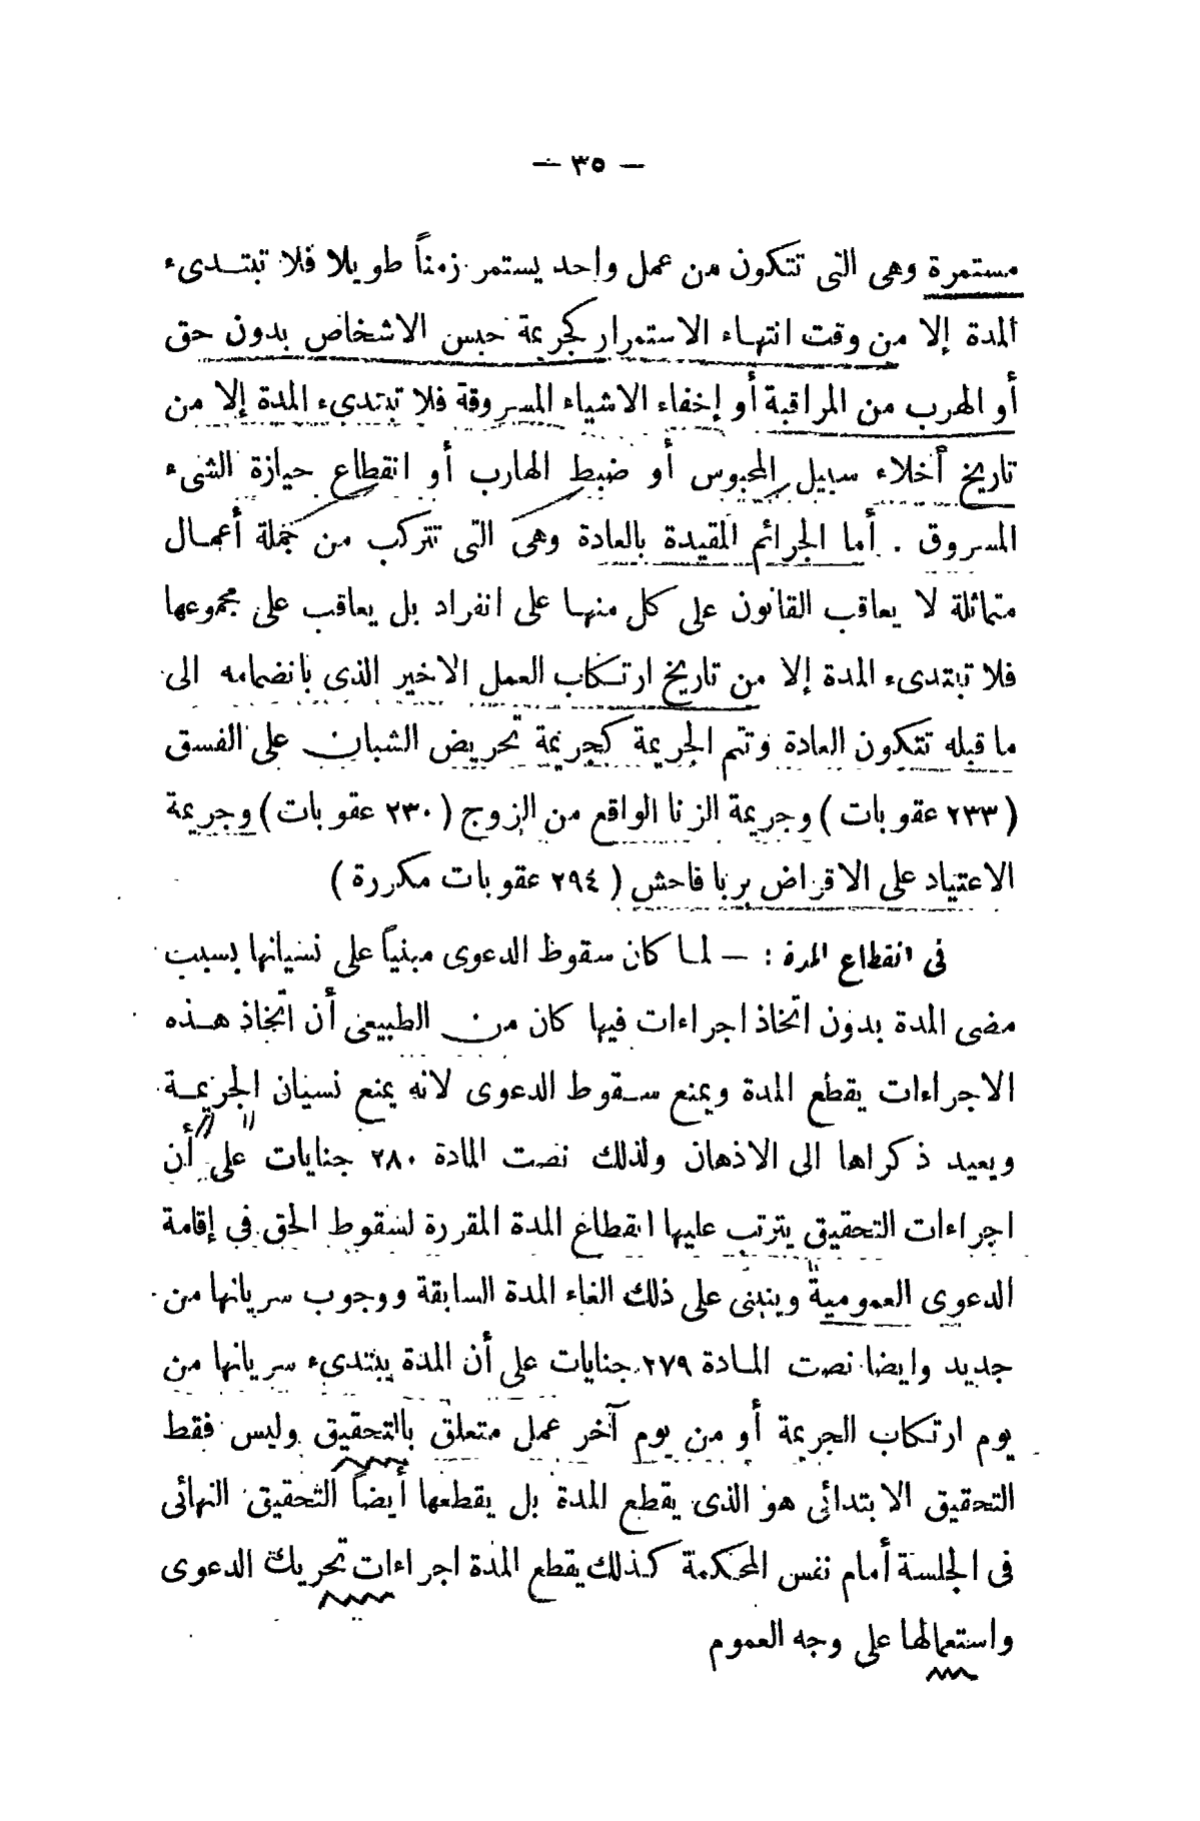 — ٣٥ —
مستمرة وهى التى تتكون من عمل واحد يستمر زمناً طويلا فلا تبتدىء
المدة إلا من وقت انتهاء الاستمرار كجريمة حبس الاشخاص بدون حق
أو الهرب من المراقبة أو إخفاء الاشياء المسروقة فلا تبتدىء المدة إلا من
تاريخ أخلاء سبيل المحبوس أو ضبط الهارب أو انقطاع حيازة الشىء
المسروق . أما الجرائم المقيدة بالعادة وهى التى تتركب من جملة أعمال
متماثلة لا يعاقب القانون على كل منها على انفراد بل يعاقب على مجموعها
فلا تبتدىء المدة إلا من تاريخ ارتكاب العمل الاخير الذى بانضمامه الى
ما قبله تتكون العادة وتتم الجريمة كجريمة تحريض الشبان على الفسق
( ٢٣٣ عقوبات ) وجريمة الزنا الواقع من الزوج ( ٢٣٠ عقوبات ) وجريمة
الاعتياد على الاقراض بربا فاحش ( ٢٩٤ عقوبات مكررة )
فى انقطاع المدة : — لما كان سقوط الدعوى مبنياً على نسيانها بسبب
مضى المدة بدون اتخاذ اجراءات فيها كان من الطبيعى أن اتخاذ هذه
الاجراءات يقطع المدة ويمنع سقوط الدعوى لانه يمنع نسيان الجريمة
ويعيد ذكراها الى الاذهان ولذلك نصت المادة ٢٨٠ جنايات على " أن
اجراءات التحقيق يترتب عليها انقطاع المدة المقررة لسقوط الحق فى إقامة
الدعوى العمومية " وينبنى على ذلك الغاء المدة السابقة ووجوب سريانها من
جديد وايضا نصت المادة ٢٧٩ جنايات على أن المدة يبتدىء سريانها من
يوم ارتكاب الجريمة أو من يوم آخر عمل متعلق بالتحقيق وليس فقط
التحقيق الابتدائى هو الذى يقطع المدة بل يقطعها أيضاً التحقيق النهائى
فى الجلسة أمام نفس المحكمة كذلك يقطع المدة اجراءات تحريك الدعوى
واستعمالها على وجه العموم